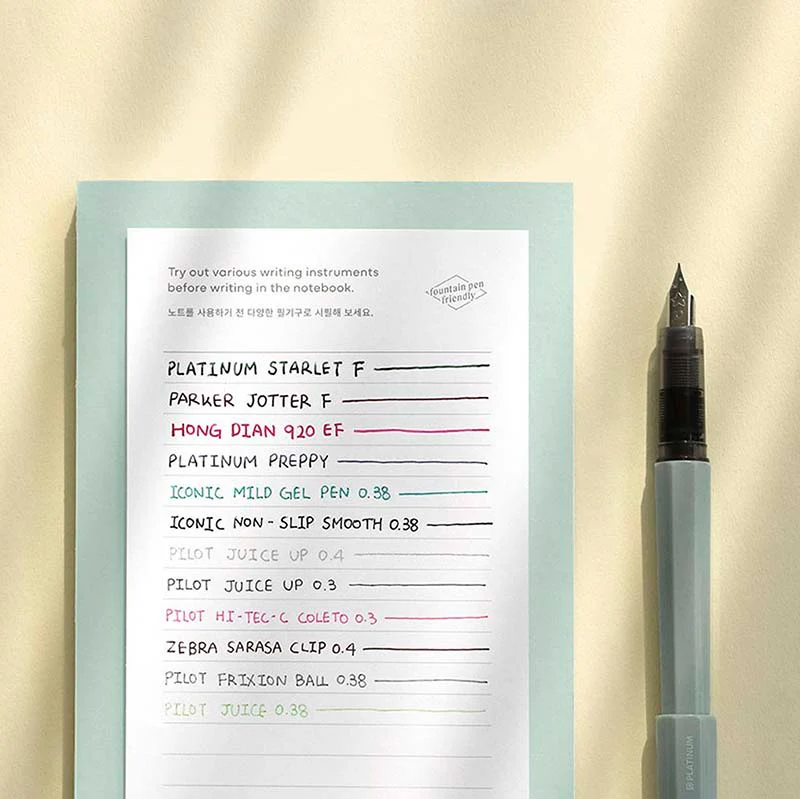 Try out various writing instruments
before writing in the notebook.
노트를 사용하기 전 다양한 필기구로 시필해 보세요.
fountain pen
friendly
PLATINUM STARLET F
PARKER JOTTER F
HONG DIAN 920 EF
PLATINUM PREPPY
ICONIC MILD GEL PEN 0.38
ICONIC NON-SLIP SMOOTH 0.38
PILOT JUICE UP 0.4
PILOT JUICE UP 0.3
PILOT HI-TEC-C COLETO 0.3
ZEBRA SARASA CLIP 0.4
PILOT FRIXION BALL 0.38
PILOT JUICE 0.38
PLATINUM